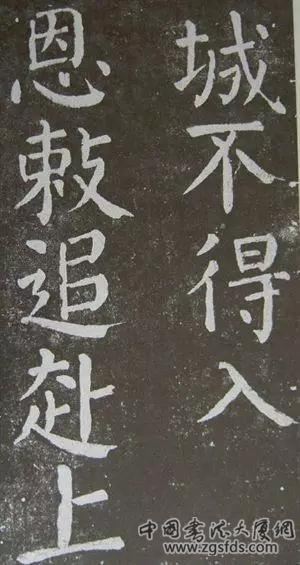 城不得入
恩敕追赴上
中国书法大厦网
www.zgsfds.com